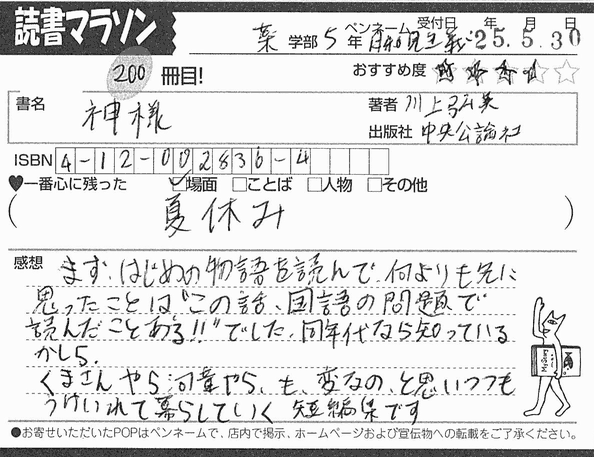 読書マラソン
薬 学部 5 年 ペンネーム 受付日 25年 5月 30日
200 冊目!
おすすめ度 ☆☆☆☆☆
書名 神様
著者 川上弘美
出版社 中央公論社
ISBN 4-12-002836-4
♥一番心に残った ☑場面 □ことば □人物 □その他
( 夏休み )
感想 まず、はじめの物語を読んで、何よりも先に
思ったことは"この話、国語の問題で
読んだことある!!"でした。同年代なら知っている
かしら。
くまさんやら河童やら、も、変なの、と思いつつも
うけいれて暮らしていく 短編集です
●お寄せいただいたPOPはペンネームで、店内で掲示、ホームページおよび宣伝物への転載をご了承ください。